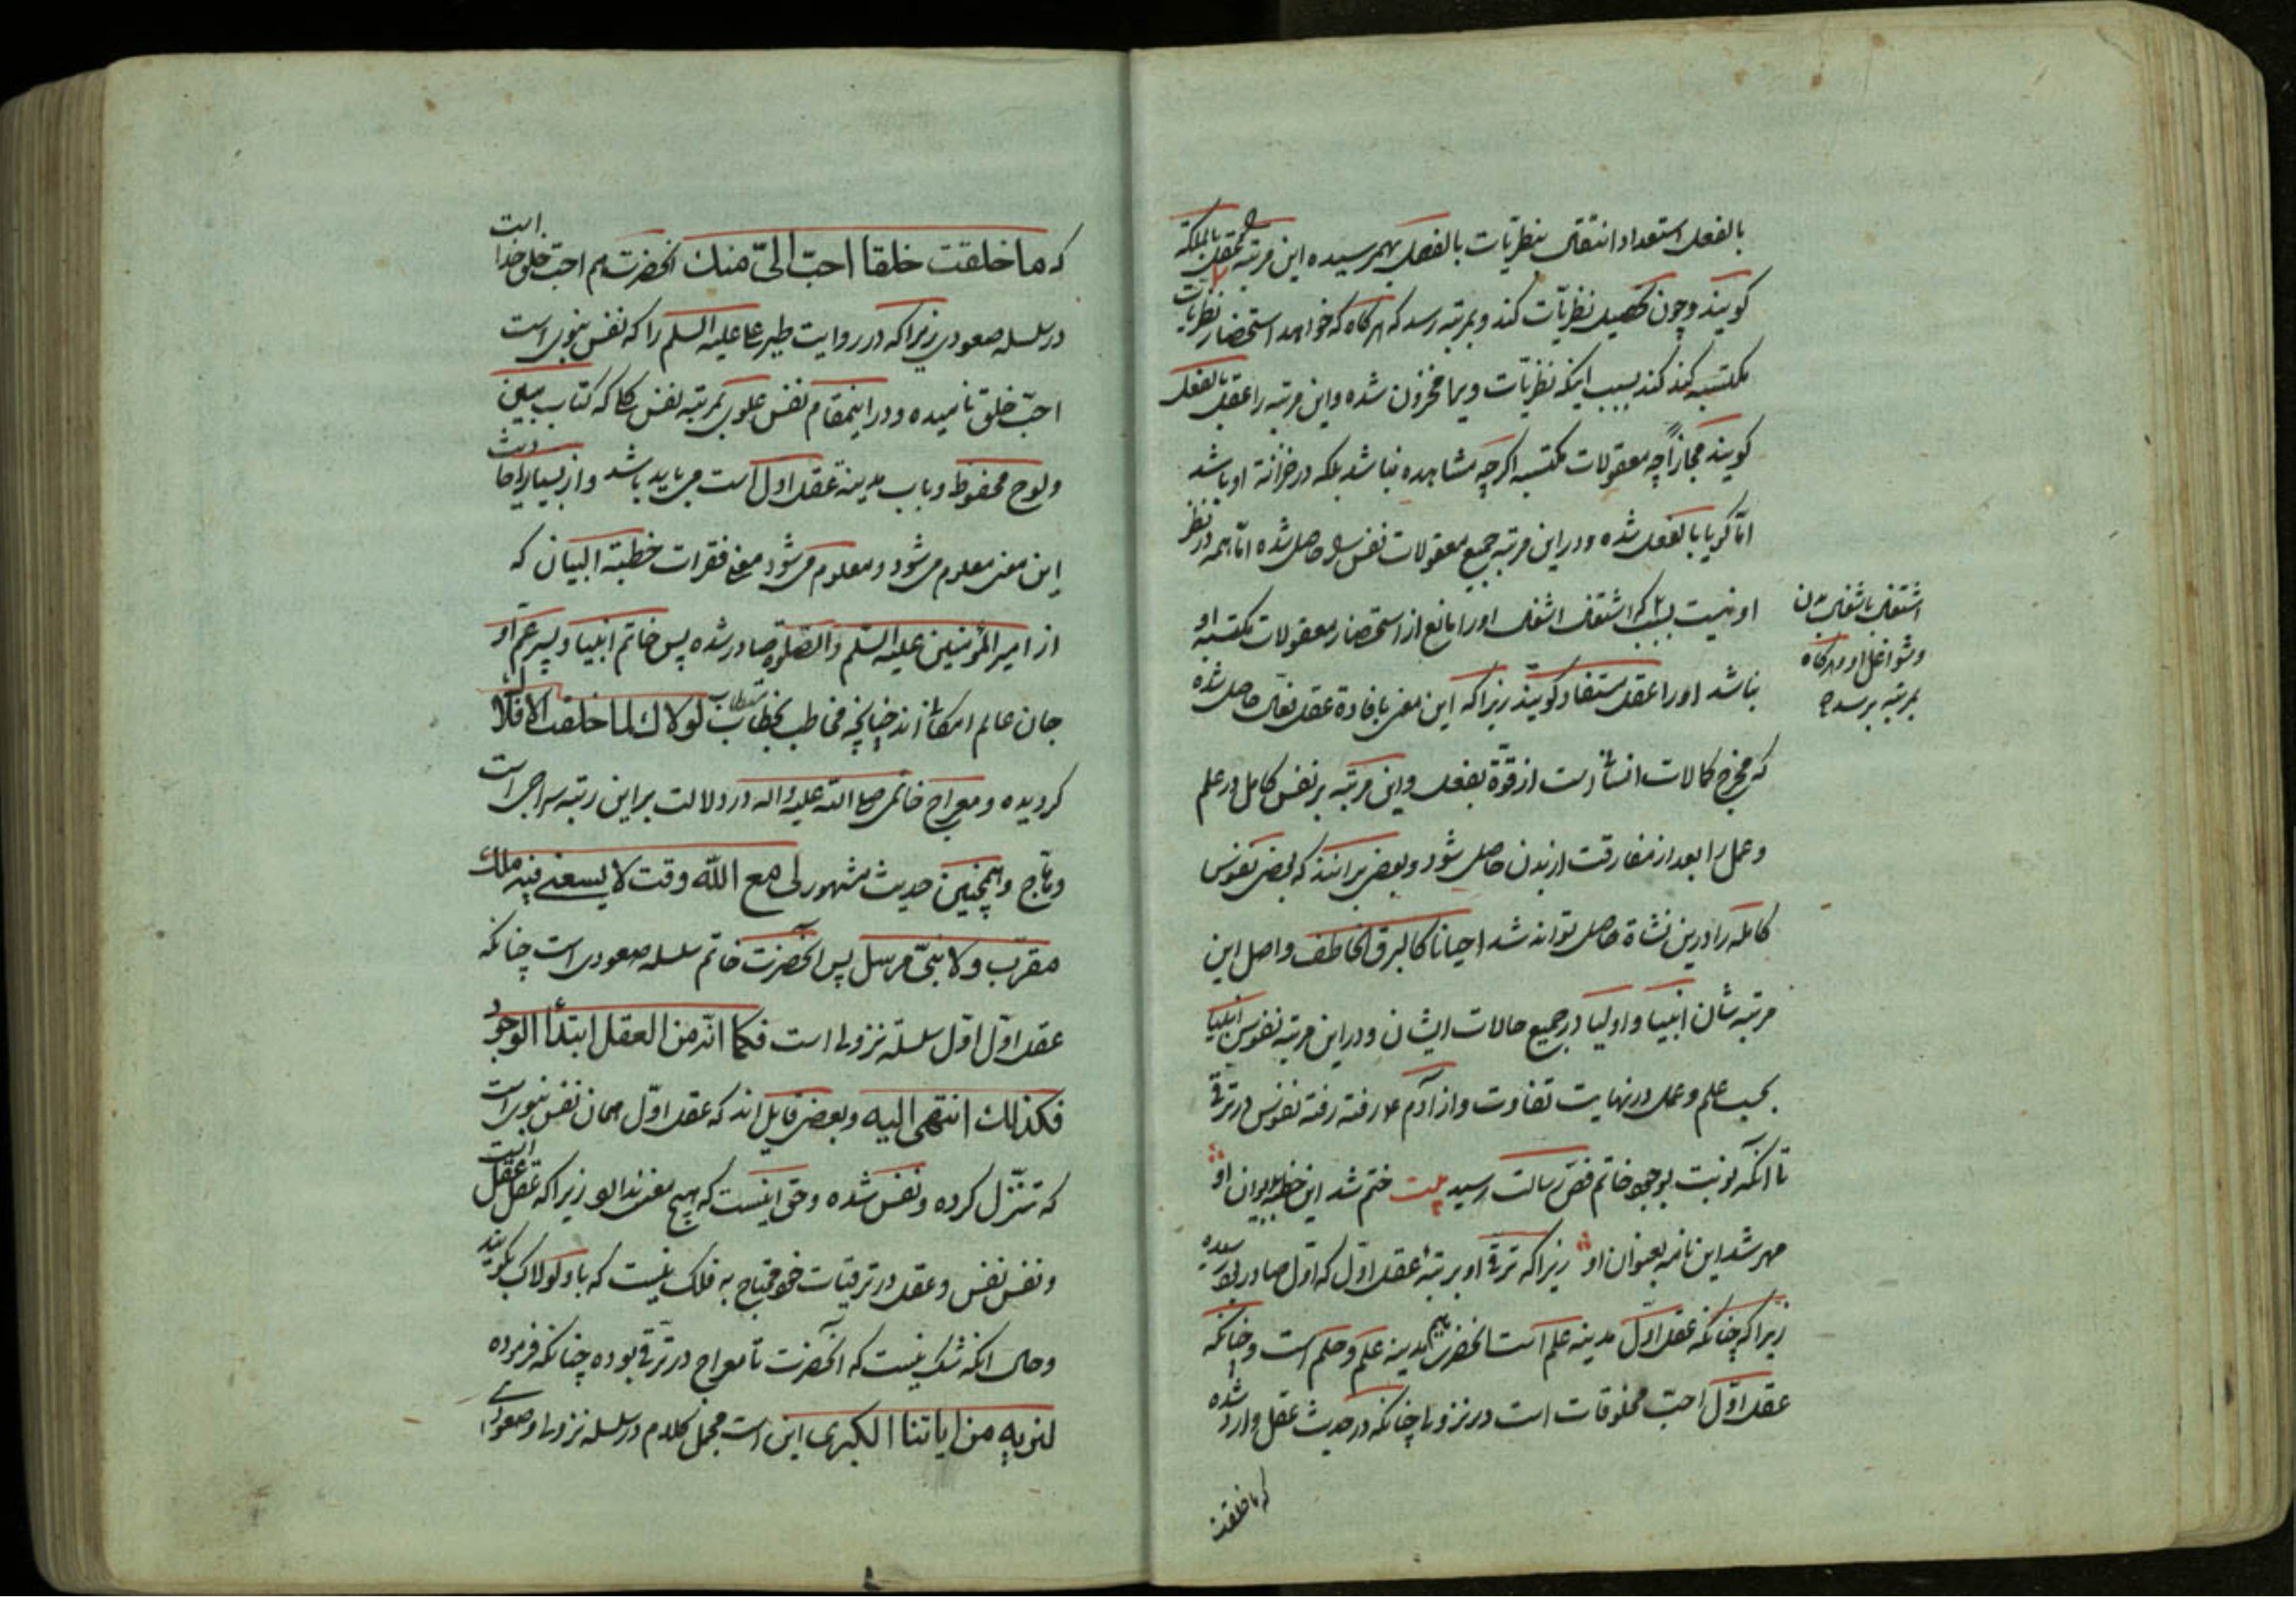 بالفعل استعداد انتقال بنظریات بالفعل بهم رسیده این مرتبه را عقل بالملکه
کویند و چون تحصیل نظریات کند و بمرتبه رسد که هرکاه که خواهد استحضار نظریات
مکتسبه کند کند بسبب اینکه نظریات ویرا مخزون شده و این مرتبه را عقل بالفعل
کویند مجازاً چه معقولات مکتسبه اکرچه مشاهده نباشد بلکه در خزانة او باشد
امّا کویا بالفعل شده و در این مرتبه جمیع معقولات نفس را حاصل شده امّا همه در نظر
او نیست بسبب اشتغال او را مانع از استحضار معقولات مکتسبه او
اشتغال باشغال بدن
و شواغل او و هرکاه
بمرتبه برسد که
نباشد او را عقل مستفاد کویند زیرا که این معنی بافادة عقل فعال حاصل شده
که مخرج کمالات انسانی است از قوّة بفعل و این مرتبه بر نفس کامل در علم
و عمل را بعد از مفارقت از بدن حاصل شود و بعضی برانند که بعضی نفوس
کامله را در این نشاة حاصل تواند شد احیانا کالبرق الخاطف و اصل این
مرتبه شان انبیا و اولیا در جمیع حالات ایشان و در این مرتبه نفوس انبیا
بحسب علم و عمل در نهایت تفاوت و از آدم ع رفته رفته نفوس در ترقی
تا انکه نوبت بوجود خاتم فص رسالت رسید بیت ختم شد این خطبه بدیوان او
مهر شد این نامه بعنوان او زیرا که ترقی او بر تبۀ عقل اوّل که اوّل صادر بود رسیده
زیرا که چنانکه عقل اوّل مدینه علم است انحضرت هم مدینه علم و حلم است و چنانکه
عقل اوّل احبّ مخلوقات است در نزولی چنانکه در حدیث عقل وارد شده
که ما خلقت
که ما خلقت خلقا احبّ الیّ منك انحضرت هم احبّ خلق خدا است
در سلسله صعودی زیرا که در روایت طیر علی علیه السلم را که نفس نبوی است
احبّ خلق نامیده و در اینمقام نفس علوی بمرتبه نفس کل که کتاب مبین
و لوح محفوظ و باب مدینة عقل اول است می باید باشد و از بسیار احادیث
این معنی معلوم می شود و معلوم می شود معنی فقرات خطبة البیان که
از امیر المؤمنین علیه السّلم و الصّلوة صادر شده پس خاتم انبیا و پسر عمّ او
جان عالم امکان اند چنانچه مخاطب بخطاب لولاك لما خلقت الافلاك
کردیده و معراج خاتم صلی الله علیه و اله در دلالت بر این رتبه سراجی است
وهّاج و همچنین حدیث مشهور لی مع الله وقت لا یسعنی فیه ملك
مقرّب و لا نبیّ مرسل پس انحضرت خاتم سلسله صعودی است چنانکه
عقل اوّل اوّل سلسلة نزولی است فکما انّه من العقل ابتدأ الوجود
فکذلك انتهی الیه و بعضی قایل اند که عقل اوّل همان نفس نبوی است
که تنزّل کرده و نفس شده و حق اینست که هیچ معنی ندارد زیرا که عقل عقل است
و نفس نفس و عقل در ترقیات خود محتاج به فلک نیست که باو لولاک بکویند
و حال انکه شک نیست که انحضرت تا معراج در ترقی بوده چنانکه فرموده
لنریه من ایاتنا الکبری این است مجمل کلام در سلسله نزولی و صعودی